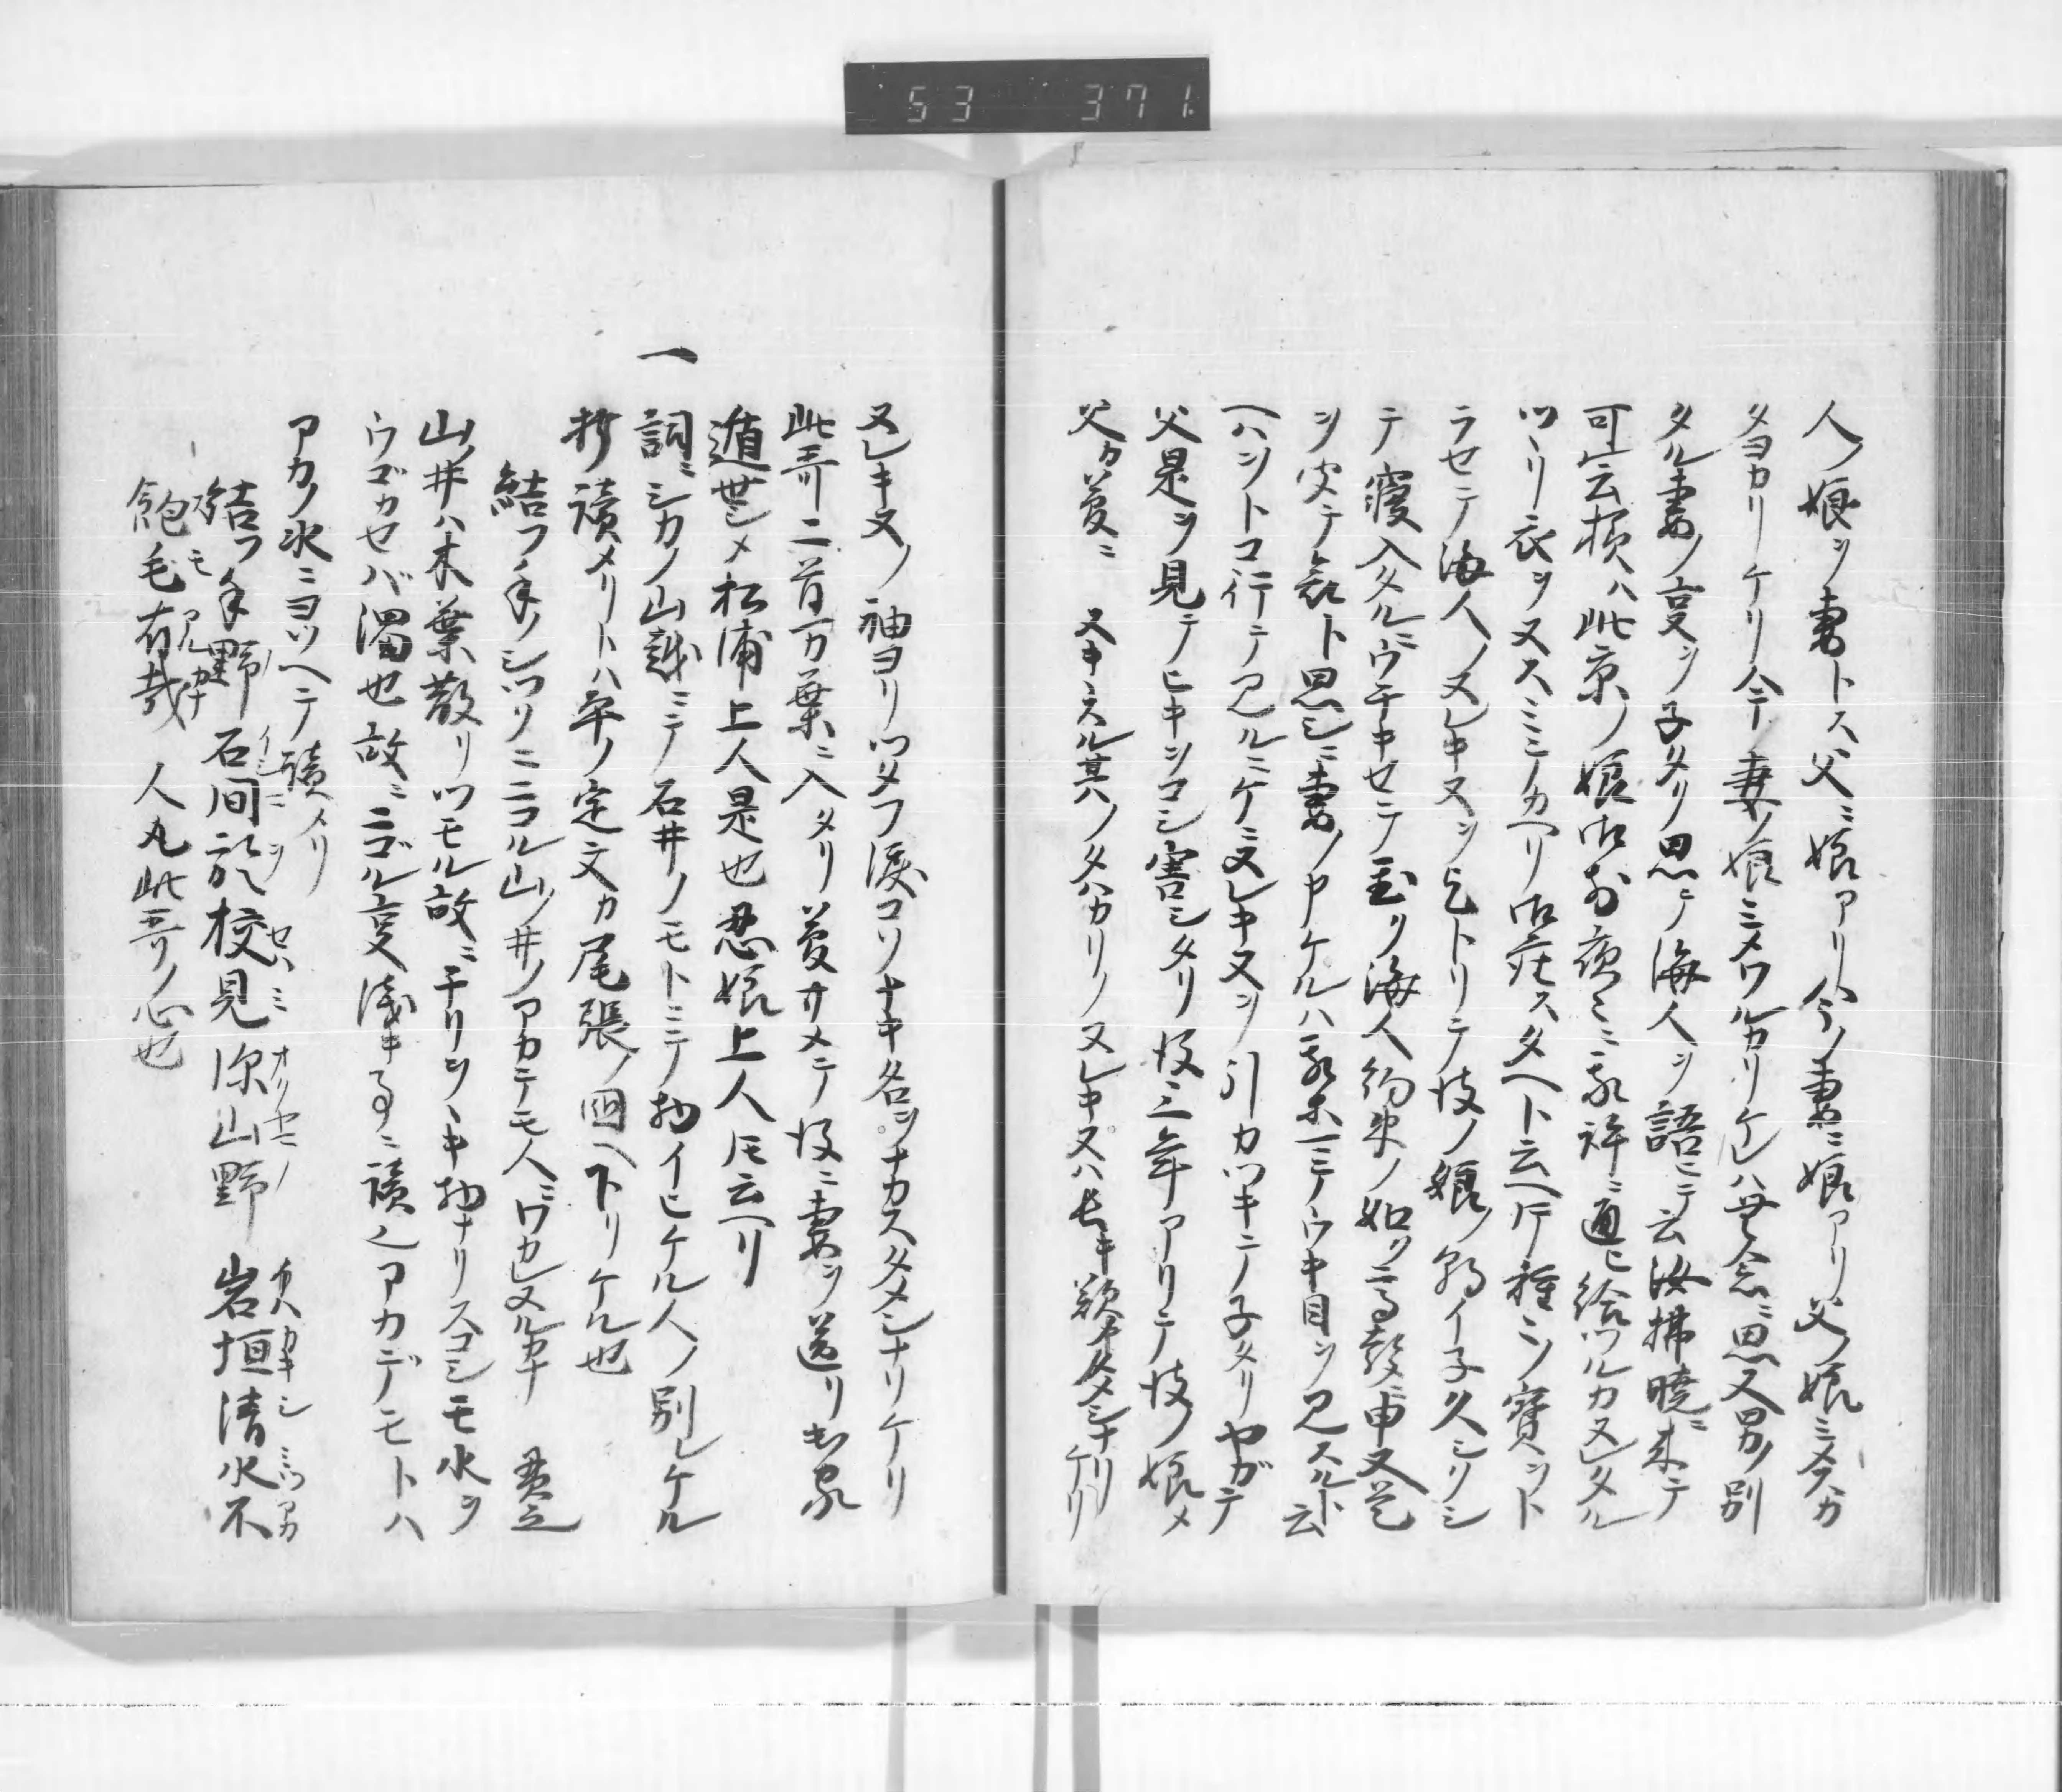 53 371.
人ノ娘ヲ妻トス父ニ娘アリ今ノ妻ニ娘アリ父ノ娘ミメスカ
タヨカリケリ今ノ妻ノ娘ミメワルカリケレハ無念ニ思又男ノ別
タル妻ノ事ヲ子タリ思テ海人ヲ語ニテ云汝拂暁ニ来テ
可云様ハ此京ノ娘御前夜々ニ我許ニ通ヒ給ツルカヌレタル
ツリ衣ヲヌスミミノカヘリ御座スタヘト云ヘ種々ノ寶ヲト
ラセテ海人ノヌレキヌヲ乞トリテ彼ノ娘ノ朝イ子久シリシ
テ寝入タルニウチキセテ至リ海人約束ノ如クニ高声申又
ヲ父テ哀ト思シニ妻ノ申ケルハ我等ニテウキ目ヲ見スルト云
ヘハソトコ行テ見ルニケニヌレキヌヲ引カツキテ子タリヤガテ
父是ヲ見テヒキツコシ害シタリ後三年アリテ彼ノ娘メ
父カ夢ニ ヌキキスル其ノタハカリノヌレキヌハ長キ歎キタメシナリケリ
ヌレキヌノ袖ヨリツタフ涙コソナキ名ヲナカスタメシナリケリ
此哥二首万葉ニ入タリ夢サメテ後ニ妻ヲ送リ出家
遁世シメ松浦上人是也忍娘上人トモ云ヘリ
一 詞ニシカノ山越ニテ石井ノモトニテ物イヒケル人ノ別レケル
折讀メリトハ平ノ定文カ尾張ノ國ヘ下リケル也
結フ手ノシツクニニコル山ノ井ノアカテモ人ニワカレヌル哉 貫之
山ノ井ハ木葉散リツモル故ニチリツヽキ物ナリスコシモ水ヲ
ウゴカセバ濁也故ニニゴル事浅キ事ニ讀也アカデノモトハ
アカノ水ニヨソヘテ讀メリ
結フ手野 石間於校見 深山野 岩垣清水不
飽毛有哉 人丸此哥ノ心也